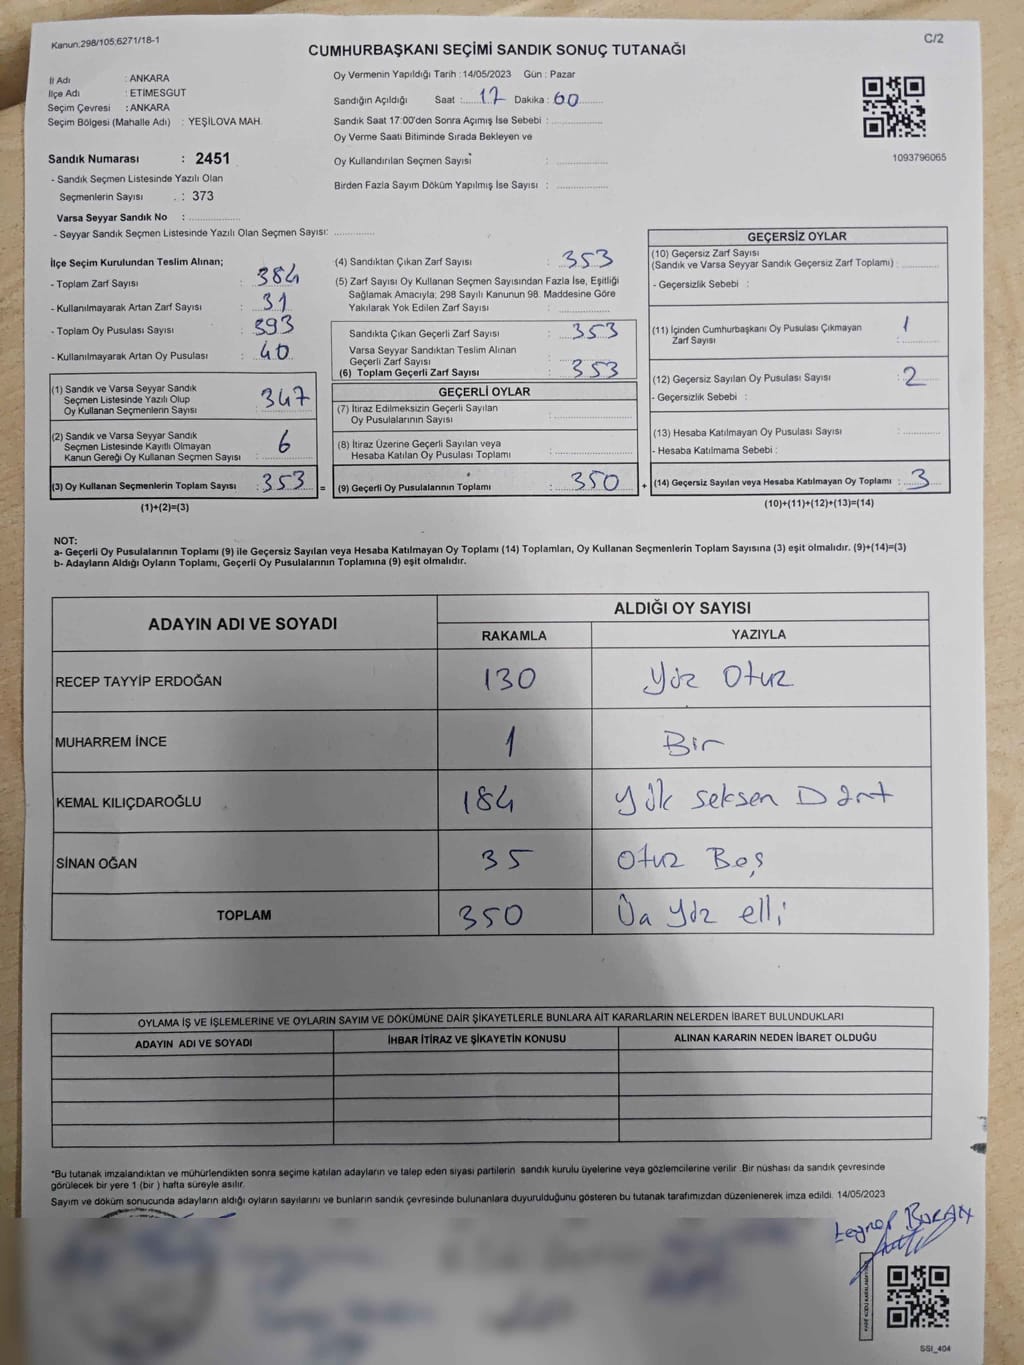 Kanun:298/105;6271/18-1
C/2
CUMHURBAŞKANI SEÇİMİ SANDIK SONUÇ TUTANAĞI
İl Adı : ANKARA
İlçe Adı : ETİMESGUT
Seçim Çevresi : ANKARA
Seçim Bölgesi (Mahalle Adı) : YEŞİLOVA MAH.
Sandık Numarası : 2451
- Sandık Seçmen Listesinde Yazılı Olan
Seçmenlerin Sayısı : 373
Varsa Seyyar Sandık No :
- Seyyar Sandık Seçmen Listesinde Yazılı Olan Seçmen Sayısı:
Oy Vermenin Yapıldığı Tarih : 14/05/2023 Gün : Pazar
Sandığın Açıldığı Saat : 17 Dakika : 60
Sandık Saat 17:00'den Sonra Açımış İse Sebebi :
Oy Verme Saati Bitiminde Sırada Bekleyen ve
Oy Kullandırılan Seçmen Sayısı :
Birden Fazla Sayım Döküm Yapılmış İse Sayısı :
1093796065
İlçe Seçim Kurulundan Teslim Alınan;
- Toplam Zarf Sayısı : 384
- Kullanılmayarak Artan Zarf Sayısı : 31
- Toplam Oy Pusulası Sayısı : 393
- Kullanılmayarak Artan Oy Pusulası : 40
(1) Sandık ve Varsa Seyyar Sandık
Seçmen Listesinde Yazılı Olup
Oy Kullanan Seçmenlerin Sayısı : 347
(2) Sandık ve Varsa Seyyar Sandık
Seçmen Listesinde Kayıtlı Olmayan
Kanun Gereği Oy Kullanan Seçmen Sayısı : 6
(3) Oy Kullanan Seçmenlerin Toplam Sayısı : 353 =
(1)+(2)=(3)
(4) Sandıktan Çıkan Zarf Sayısı : 353
(5) Zarf Sayısı Oy Kullanan Seçmen Sayısından Fazla İse, Eşitliği
Sağlamak Amacıyla; 298 Sayılı Kanunun 98. Maddesine Göre
Yakılarak Yok Edilen Zarf Sayısı :
Sandıkta Çıkan Geçerli Zarf Sayısı : 353
Varsa Seyyar Sandıktan Teslim Alınan
Geçerli Zarf Sayısı :
(6) Toplam Geçerli Zarf Sayısı : 353
GEÇERLİ OYLAR
(7) İtiraz Edilmeksizin Geçerli Sayılan
Oy Pusulalarının Sayısı :
(8) İtiraz Üzerine Geçerli Sayılan veya
Hesaba Katılan Oy Pusulası Toplamı :
(9) Geçerli Oy Pusulalarının Toplamı : 350 +
GEÇERSİZ OYLAR
(10) Geçersiz Zarf Sayısı
(Sandık ve Varsa Seyyar Sandık Geçersiz Zarf Toplamı) :
- Geçersizlik Sebebi :
(11) İçinden Cumhurbaşkanı Oy Pusulası Çıkmayan
Zarf Sayısı : 1
(12) Geçersiz Sayılan Oy Pusulası Sayısı : 2
- Geçersizlik Sebebi :
(13) Hesaba Katılmayan Oy Pusulası Sayısı :
- Hesaba Katılmama Sebebi :
(14) Geçersiz Sayılan veya Hesaba Katılmayan Oy Toplamı : 3
(10)+(11)+(12)+(13)=(14)
NOT:
a- Geçerli Oy Pusulalarının Toplamı (9) ile Geçersiz Sayılan veya Hesaba Katılmayan Oy Toplamı (14) Toplamları, Oy Kullanan Seçmenlerin Toplam Sayısına (3) eşit olmalıdır. (9)+(14)=(3)
b- Adayların Aldığı Oyların Toplamı, Geçerli Oy Pusulalarının Toplamına (9) eşit olmalıdır.
ADAYIN ADI VE SOYADI
ALDIĞI OY SAYISI
RAKAMLA YAZIYLA
RECEP TAYYİP ERDOĞAN 130 Yüz Otuz
MUHARREM İNCE 1 Bir
KEMAL KILIÇDAROĞLU 184 Yük seksen Dört
SİNAN OĞAN 35 Otuz Beş
TOPLAM 350 Üa Yüz elli
OYLAMA İŞ VE İŞLEMLERİNE VE OYLARIN SAYIM VE DÖKÜMÜNE DAİR ŞİKAYETLERLE BUNLARA AİT KARARLARIN NELERDEN İBARET BULUNDUKLARI
ADAYIN ADI VE SOYADI İHBAR İTİRAZ VE ŞİKAYETİN KONUSU ALINAN KARARIN NEDEN İBARET OLDUĞU
*Bu tutanak imzalandıktan ve mühürlendikten sonra seçime katılan adayların ve talep eden siyasi partilerin sandık kurulu üyelerine veya gözlemcilerine verilir. Bir nüshası da sandık çevresinde
görülecek bir yere 1 (bir ) hafta süreyle asılır.
Sayım ve döküm sonucunda adayların aldığı oyların sayılarını ve bunların sandık çevresinde bulunanlara duyurulduğunu gösteren bu tutanak tarafımızdan düzenlenerek imza edildi. 14/05/2023
SSI_404